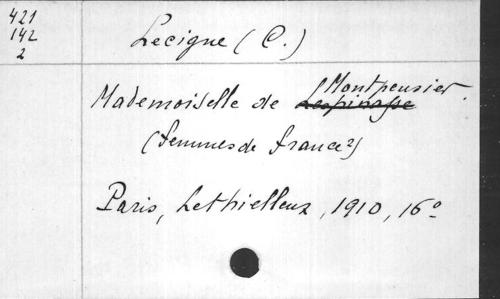 421
142
2
Lecigne (C.)
Montpensier.
Mademoiselle de Lespinasse
(Femmes de France 2)
Paris, Lethielleux, 1910, 16°